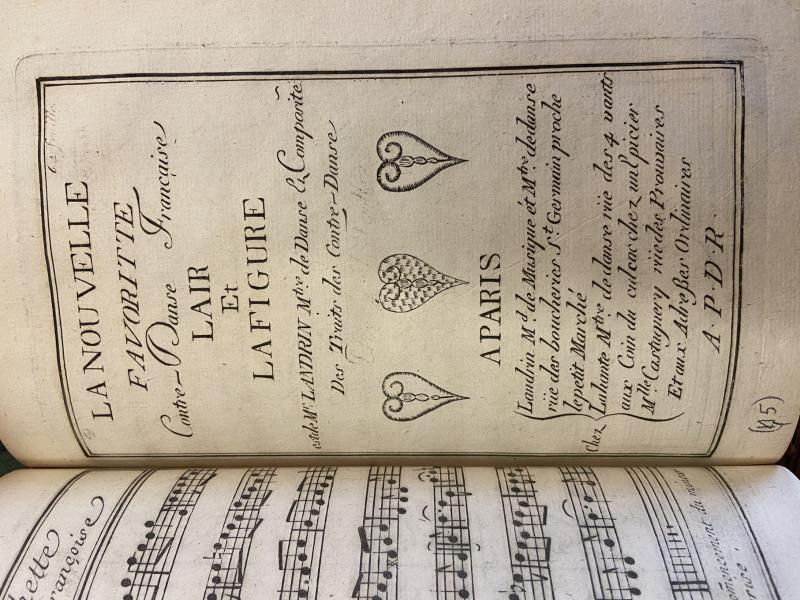 LA NOUVELLE
FAVORITTE
Contre-Danse Française
LAIR
Et
LAFIGURE
est de Mr. LANDRIN Mtre de Danse & Compositr
Des Traits des Contre-Danse
A PARIS
Chez
Landrin Md de Musique et Mtre de danse
rüe des boucheries St Germain proche
le petit Marché
Lahante Mtre de danse rüe des 4 vants
aux Coin du culsac chez un Epicier
Mlle Castagnery rüe des Prouvaires
Et aux Adresses Ordinaires
A · P · D · R ·
(45)
ette
rançoise